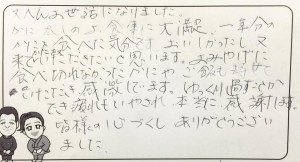 大へんお世話になりました。
かに大好の上 食事に大満足、一年分の
かにを食べた気分です。おいしかったし又
来て行ただきたいと思います。おみやげに
食べ切れなかったかにや ご飯もおむすび
いただき感激しています。ゆっくり過すことが
でき疲れもいやされ 本当に感謝します。
皆様の心づくし ありがとうござい
ました。